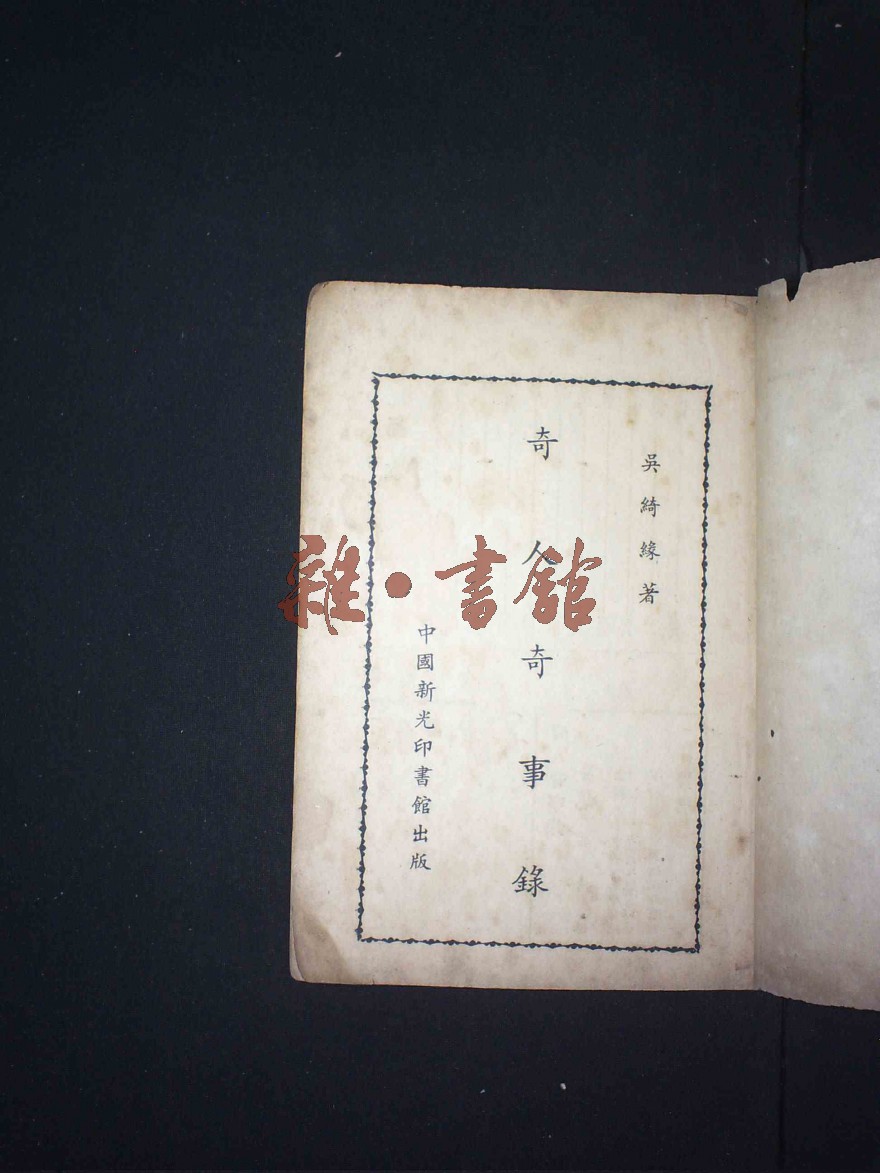 吳綺緣著
奇人奇事錄
中國新光印書館出版
雜·書館